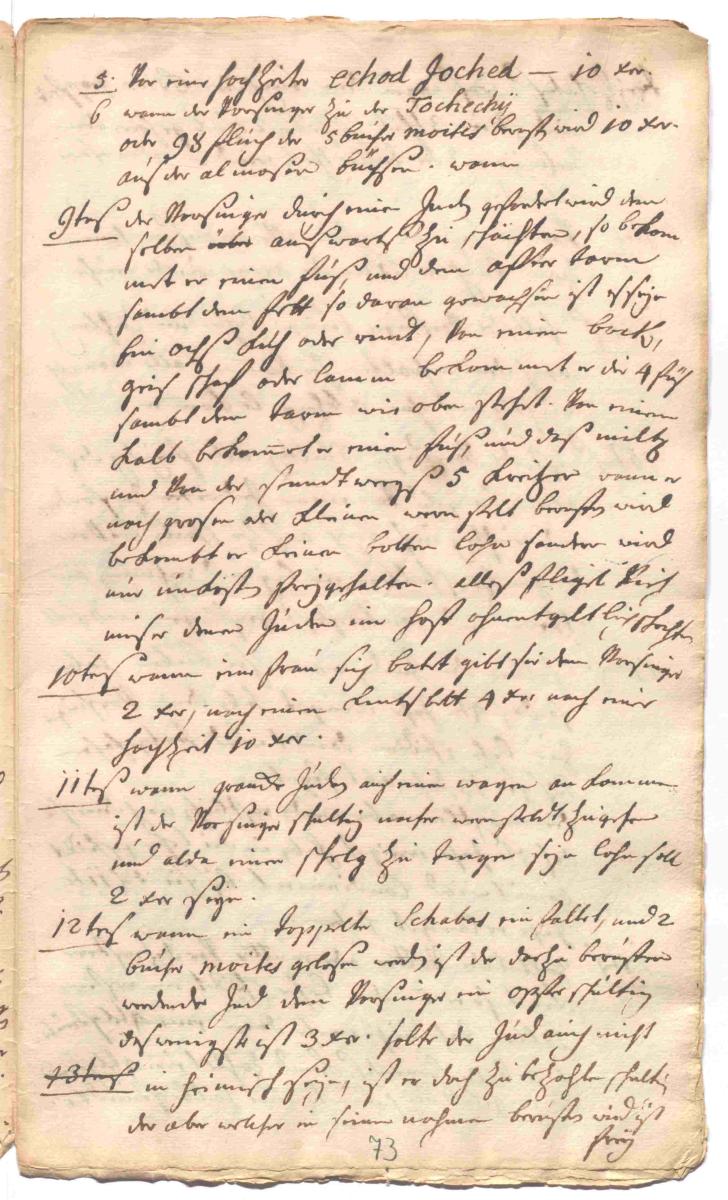 5. Vor einer hochzeit echod Joched — 10 xer.
6 wann der Vorsinger zu der Tochechij
oder 98 fluch der 5 bucher moites berufft wird 10 xer.
aus der almosen büchsen. wann
9tens der Vorsinger durch einen Juden gefordert wird dem
selben auswarts zu schächten, so bekom
met er einen fus, und den affter darm
sambt dem fett so daran gewachsen ist es seye
ein ochs kuh oder rindt, Von einem bockh,
geis schaf oder lamm bekommet er die 4 füs
sambt dem darm wie oben stehet. Von einem
Kalb bekommet er einen fus, und das miltz
und Von der stundt weegs 5 Kreitzer wann er
nach grosen oder Kleinen wernfelt beruffen wird
bekombt er keinen botten lohn sondern wird
nur unkösten freygehalten. alles fligel Vich
mus er denen Juden im hoff ohnentgeltlich schechten
10tens wann eine frau sich badet gibt sie dem Vorsinger
2 xer, nach einem Kintsbett 4 xer nach einer
hochzeit 10 xer.
11tens wann Juden auf einem wagen an kommen
ist der Vorsinger schultig nacher wernfeldt zu gehen
und alda einen zu dingen sein lohn soll
2 xer seyn.
12tens wann ein doppelter Schabas ein fallet, und 2
bücher moites gelesen werden ist der darzu beruffen
werdender Jud dem Vorsinger ein opffer schultig
das wenigste ist 3 xer. solte der Jud auch nicht
13tens in heimisch seyn, ist er doch zu bezahlen schultig
der aber welcher in seinem nahmen beruffen wird ist
frey
73